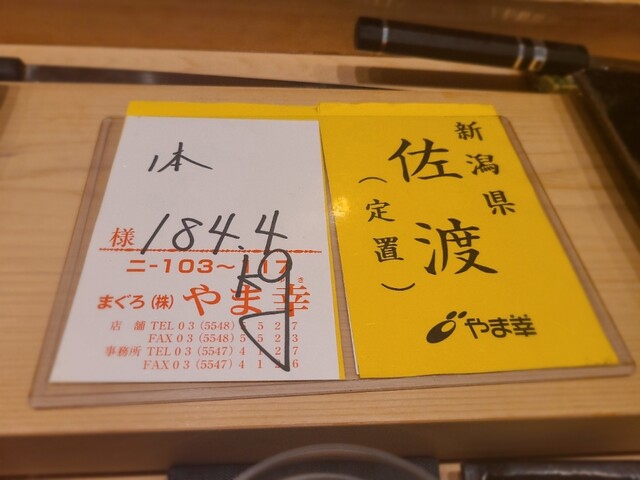 1本
様 184.4
ニ-103~117
まぐろ(株)やま幸
店舗 TEL 03 (5548) 5527
FAX 03 (5548) 5523
事務所 TEL 03 (5547) 4127
FAX 03 (5547) 4126
新潟県
佐渡
(定置)
やま幸